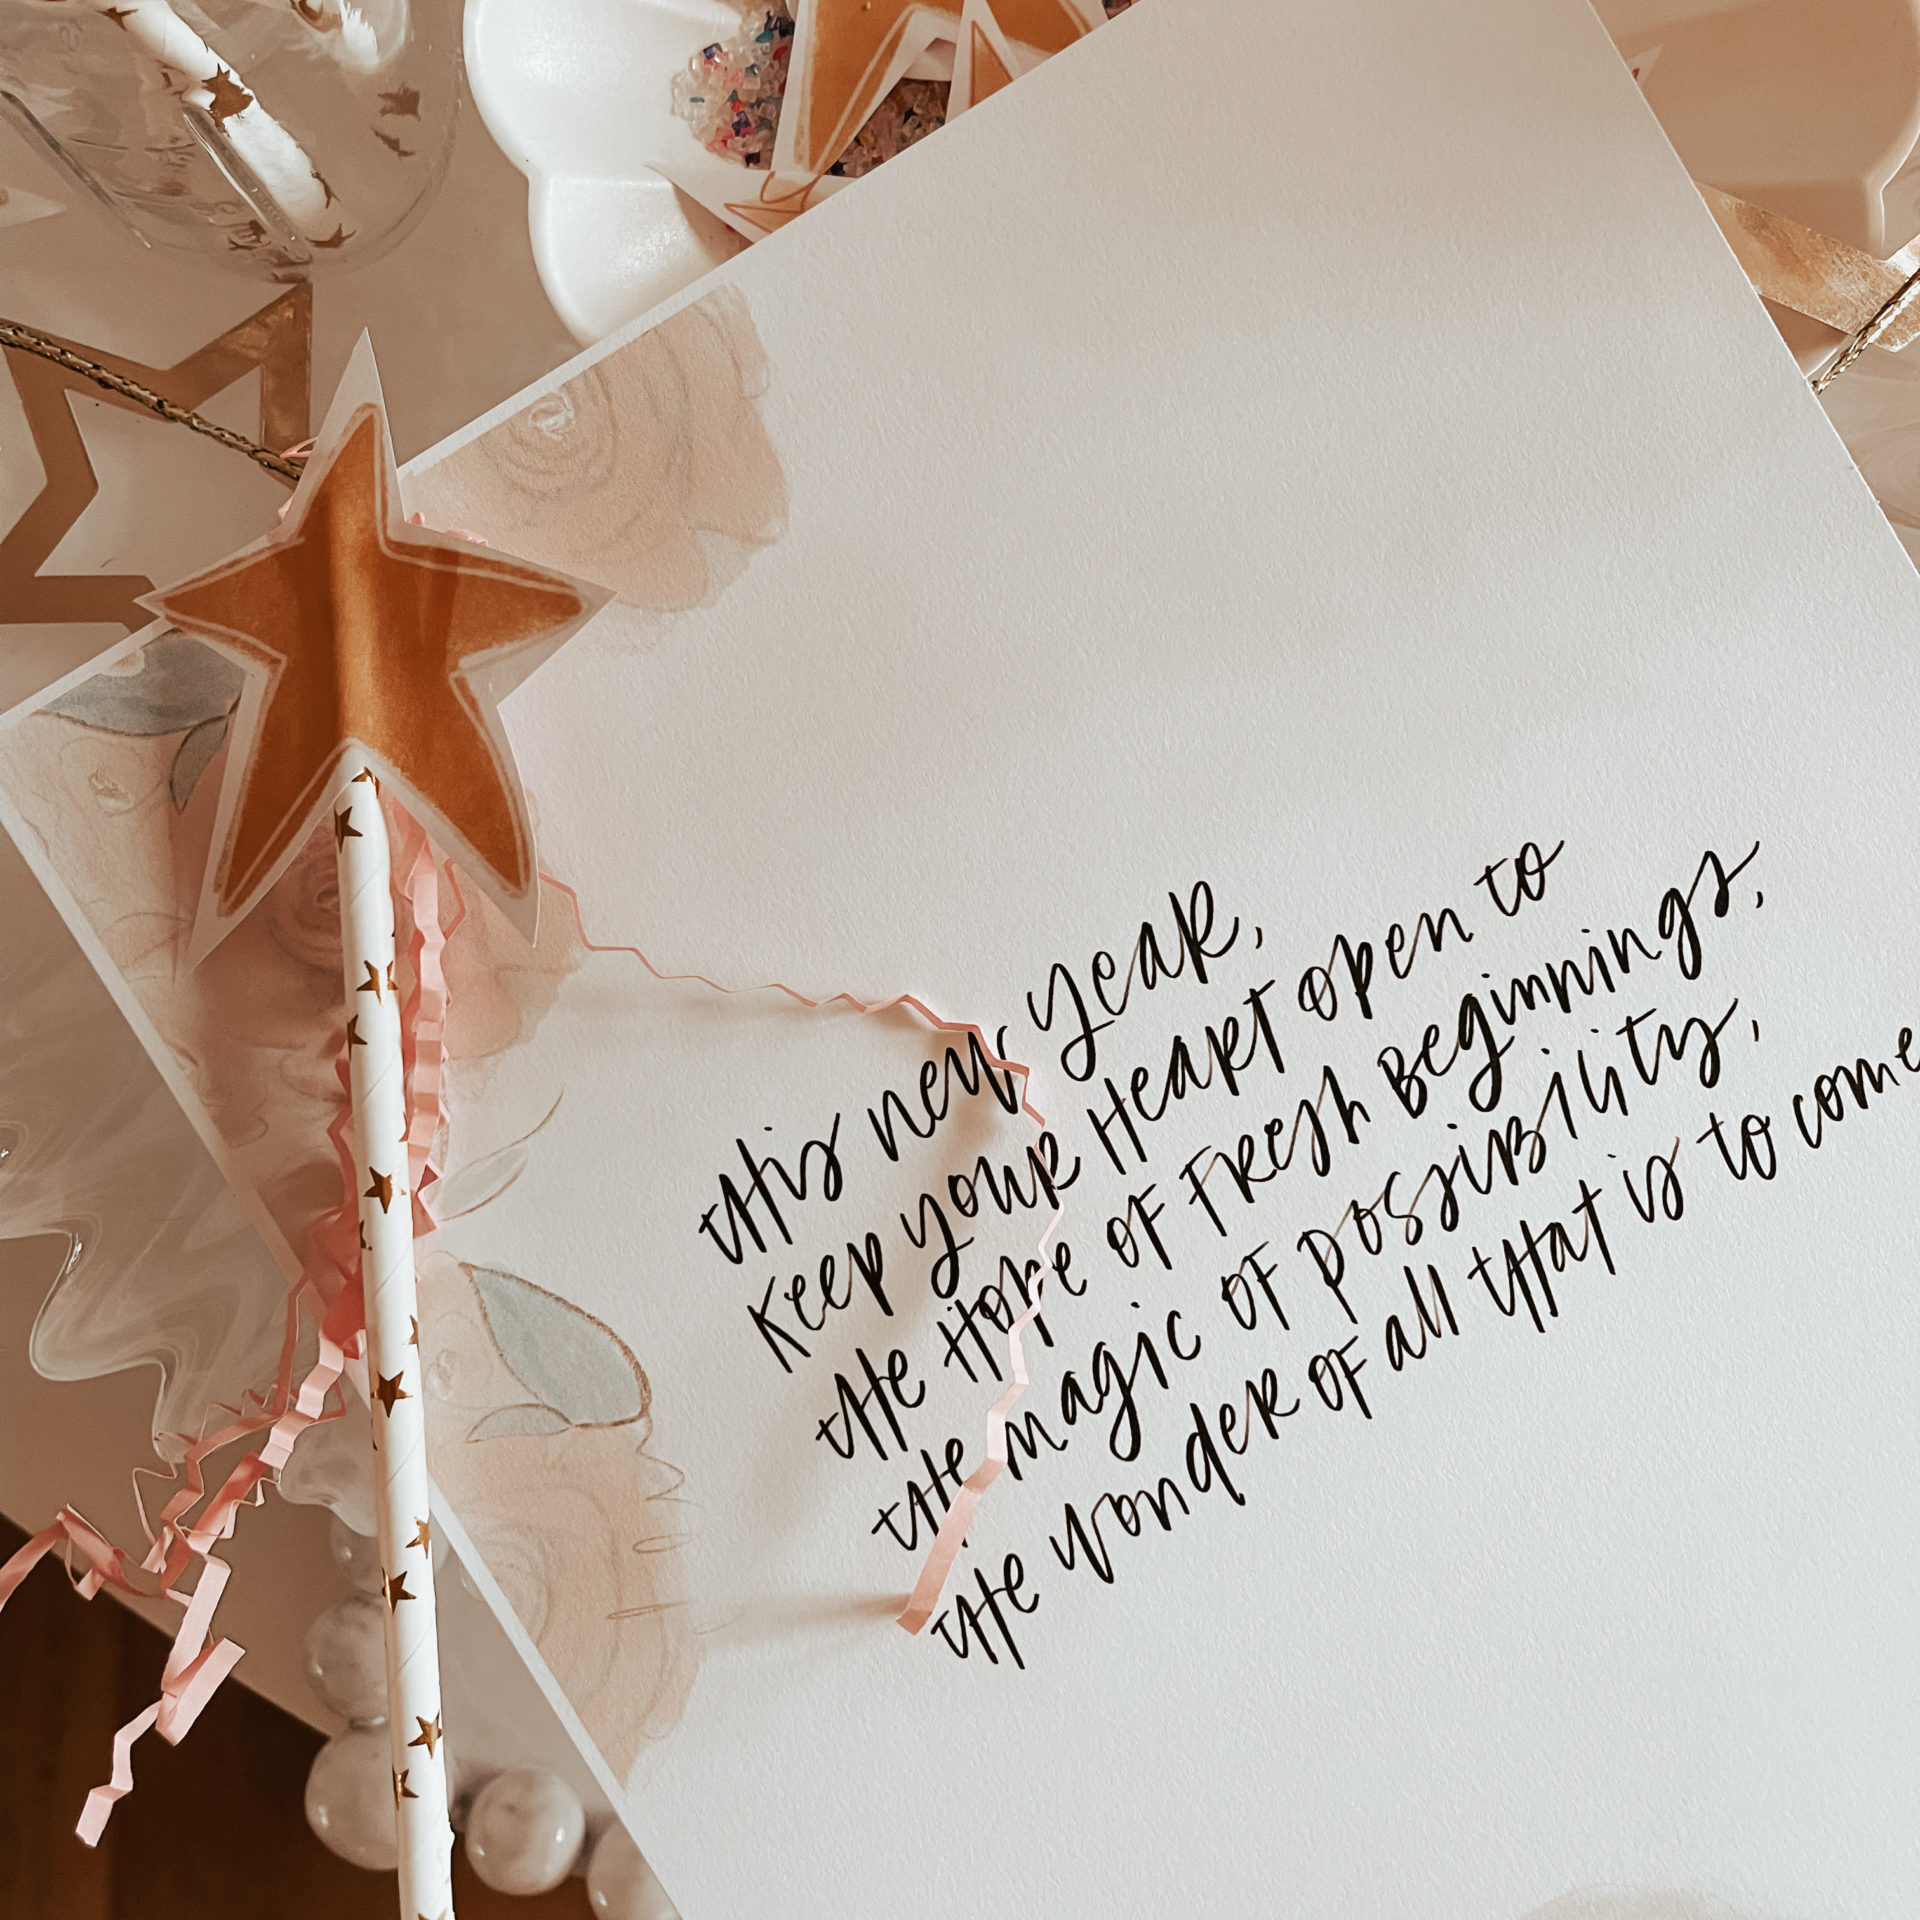 this new year,
keep your heart open to
the hope of fresh beginnings,
the magic of possibility,
the wonder of all that is to come